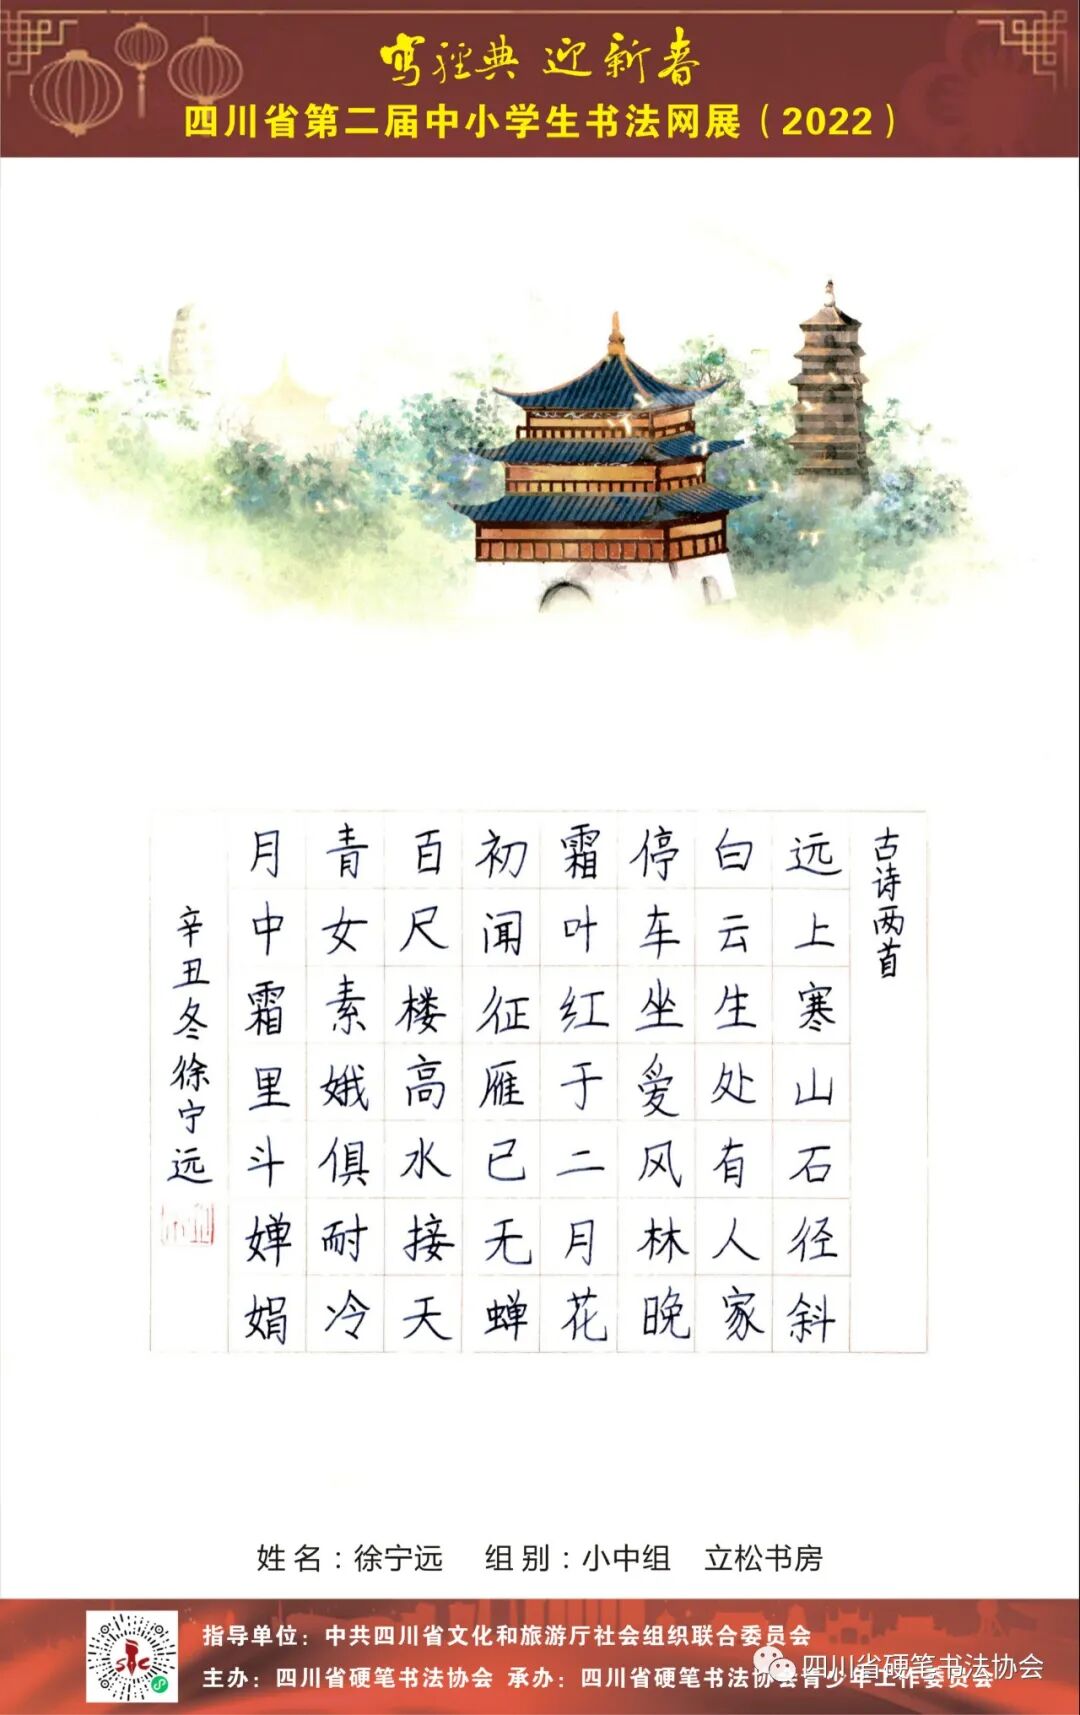 写经典 迎新春
四川省第二届中小学生书法网展（2022）
古诗两首
远上寒山石径斜
白云生处有人家
停车坐爱风林晚
霜叶红于二月花
初闻征雁已无蝉
百尺楼高水接天
青女素娥俱耐冷
月中霜里斗婵娟
辛丑冬徐宁远
姓名：徐宁远 组别：小中组 立松书房
指导单位：中共四川省文化和旅游厅社会组织联合委员会
主办：四川省硬笔书法协会 承办：四川省硬笔书法协会青少年工作委员会
四川省硬笔书法协会